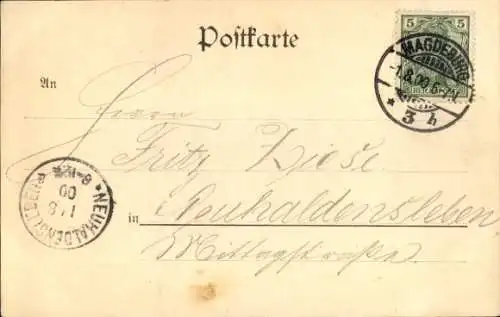 Postkarte
5 5
MAGDEBURG
-1.8.00.6-7N.
* 3 h
An
Herrn
Fritz Ziese
in Neuhaldensleben
Mittagstraße
* NEUHALDENSLEBEN
1/8
00